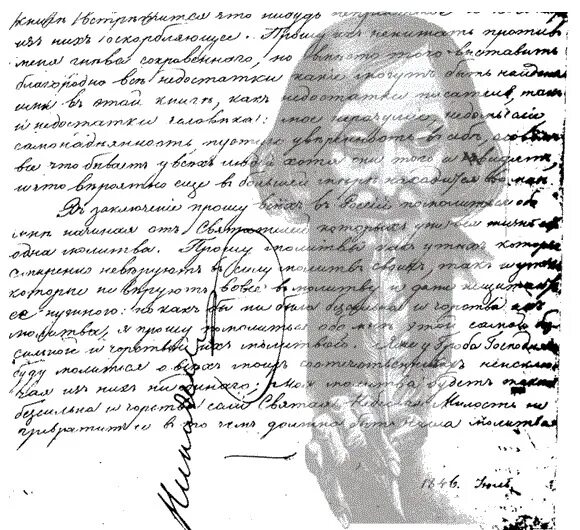 книги встрѣтится что нибудь непріятное
изъ нихъ оскорбляющее. Прошу ихъ не питать противъ
меня гнѣва сокровеннаго, но вмѣсто того выставить
благородно всѣ недостатки какіе могутъ быть найдены
ими въ этой книгѣ, какъ недостатки писателя, такъ
и недостатки человѣка: мое неразуміе, недомысліе
самонадѣянность, пустую увѣренность въ себѣ, словомъ
все что бываетъ у всѣхъ людей хотя они того и не видятъ,
и что вѣроятно еще въ большей мѣрѣ находится во мнѣ.
Въ заключеніе прошу всѣхъ въ Россіи помолиться обо
мнѣ начиная отъ Святителей которыхъ уже вся жизнь есть
одна молитва. Прошу молитвы какъ у тѣхъ которые
смиренно невѣруютъ въ силу молитвъ своихъ, такъ и у тѣхъ
которые не вѣруютъ вовсе въ молитву и даже не считаютъ
ее нужною: но какъ бы ни была безсильна и черства ихъ
молитва, я прошу помолиться обо мнѣ этой самой без
сильной и черствой ихъ молитвой. Я же у Гроба Господня
буду молиться о всѣхъ моихъ соотечественникахъ неисклю
чая изъ нихъ ни единаго; моя молитва будетъ также
безсильна и черства если Святая Небесная Милость не
превратитъ ее въ то чемъ должна быть наша молитва
1846. Іюль.